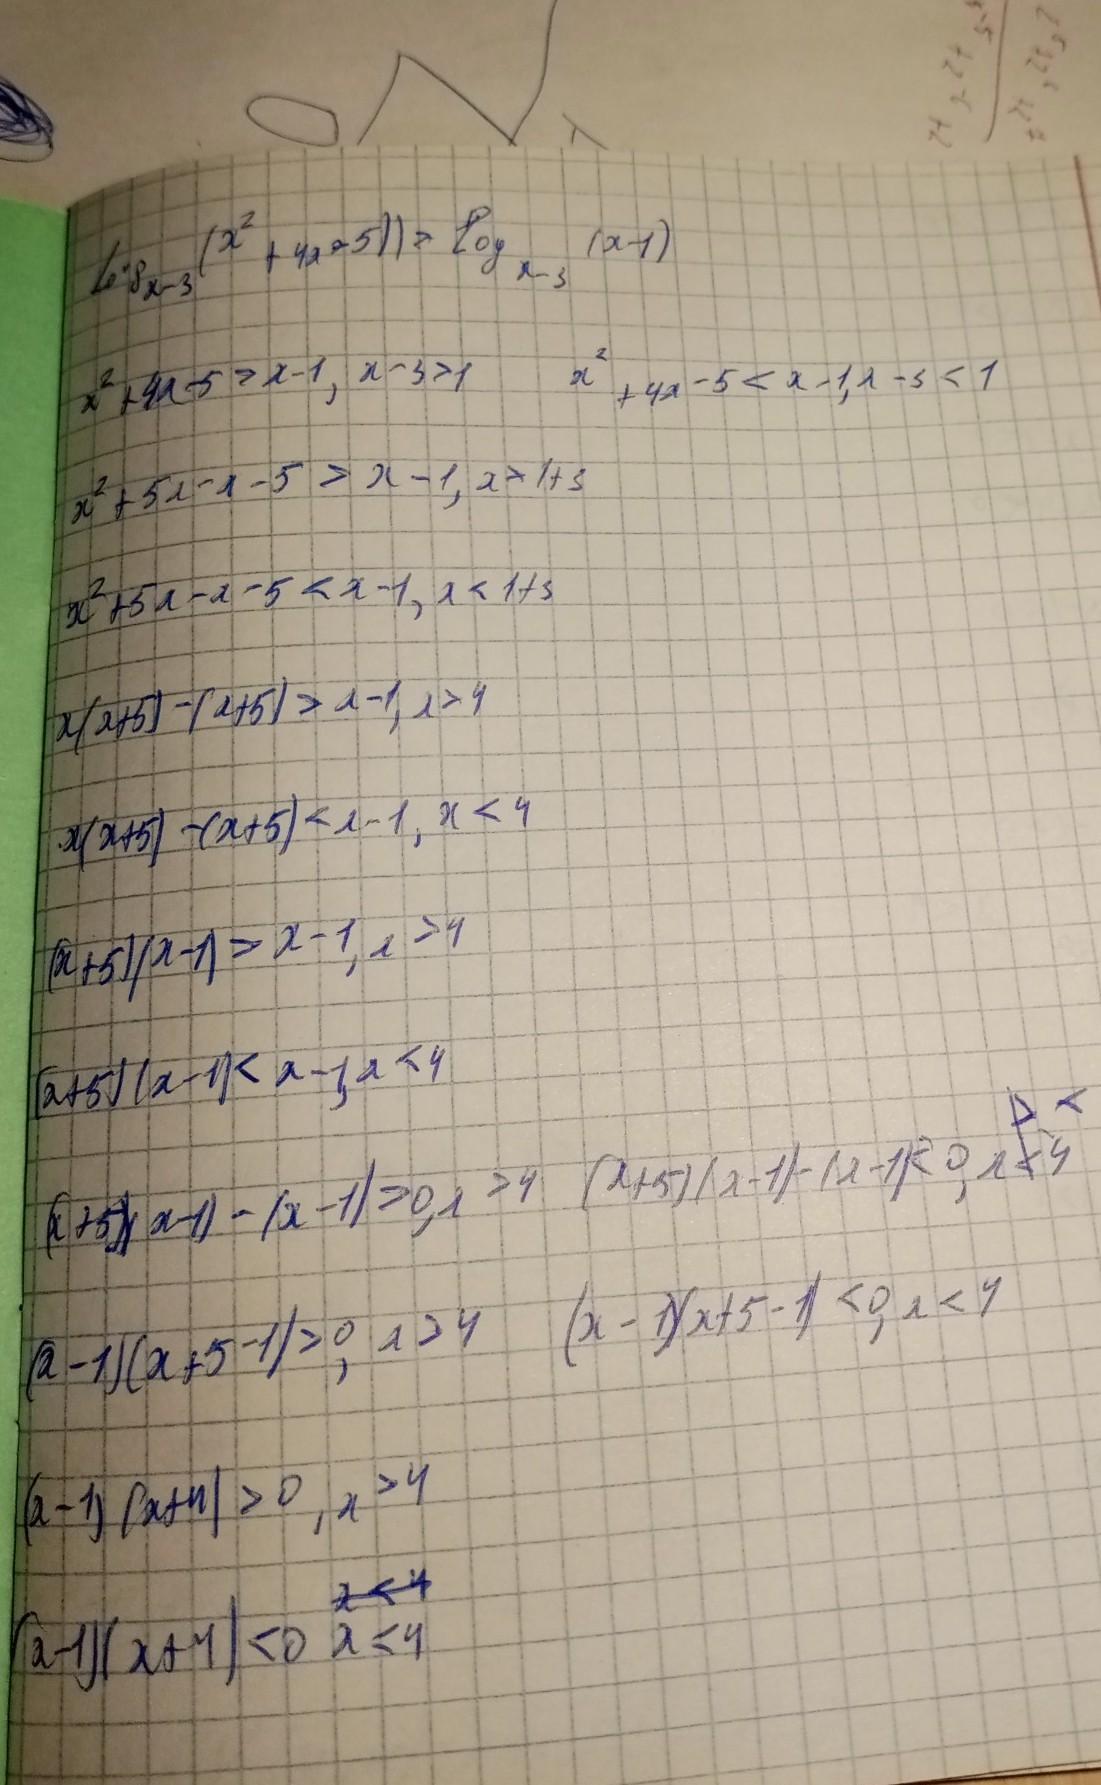 log x-3 (x² + 4x - 5)) > log x-3 (x-1)
x² + 4x - 5 > x - 1, x - 3 > 1 x² + 4x - 5 < x - 1, x - 3 < 1
x² + 5x - x - 5 > x - 1, x > 1+3
x² + 5x - x - 5 < x - 1, x < 1+3
x(x+5) - (x+5) > x - 1, x > 4
x(x+5) - (x+5) < x - 1, x < 4
(x+5)(x-1) > x - 1, x > 4
(x+5)(x-1) < x - 1, x < 4
(x+5)(x-1) - (x-1) > 0, x > 4 (x+5)(x-1) - (x-1) < 0, x < 4
(x-1)(x+5-1) > 0, x > 4 (x-1)(x+5-1) < 0, x < 4
(x-1)(x+4) > 0, x > 4
x < 4
(x-1)(x+4) < 0 x < 4